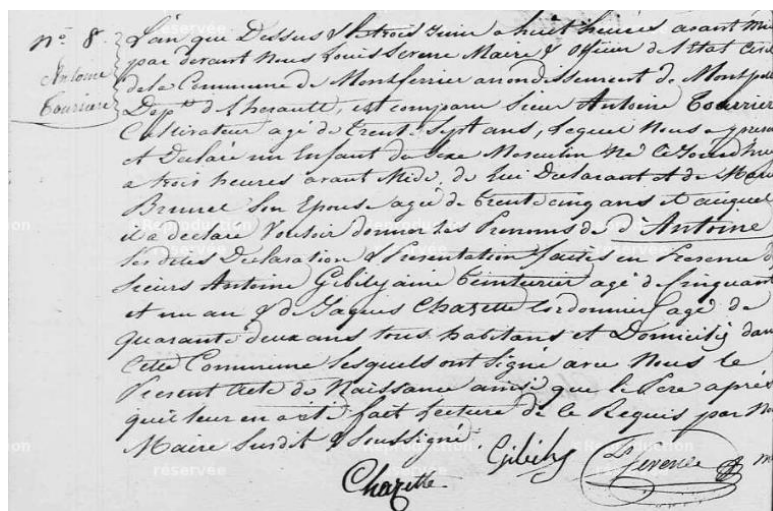 n.° 8.
Antoine
Tourriere
L'an que Dessus & le trois Juin a huit heures avant Mi
par devant Nous Louis Serene Maire & officier de l'Etat Civil
de la Commune de Montferrier arrondissement de Montpell
Dep.t de l'herault, est comparu Sieur Antoine Tourrier
Cultivateur agé de Trente Sept ans, Lequel Nous a presen
et Declaré un Enfant du Sexe Masculin Né Cejourdhui
a trois heures avant Midi, de Lui Declarant et de Marie
Brunel Son Epouse agée de trente cinq ans et auquel
il a declaré Vouloir donner les Prenoms de d'Antoine
les dites Declaration & Presentation faites en Presence de
Sieurs Antoine Gibily ainé Teinturier agé de Cinquante
et un an & de Jaques Chazette Cordonnier agé de
quarante deux ans tous habitans et Domiciliés dan
Cette Commune lesquels ont Signé avec Nous le
Present Acte de Naissance ainsi que le Pere après
qu'il leur en a été fait Lecture de le Requis par No
Maire Susdit & Soussigné.
Gibily
Serene m
Chazette.